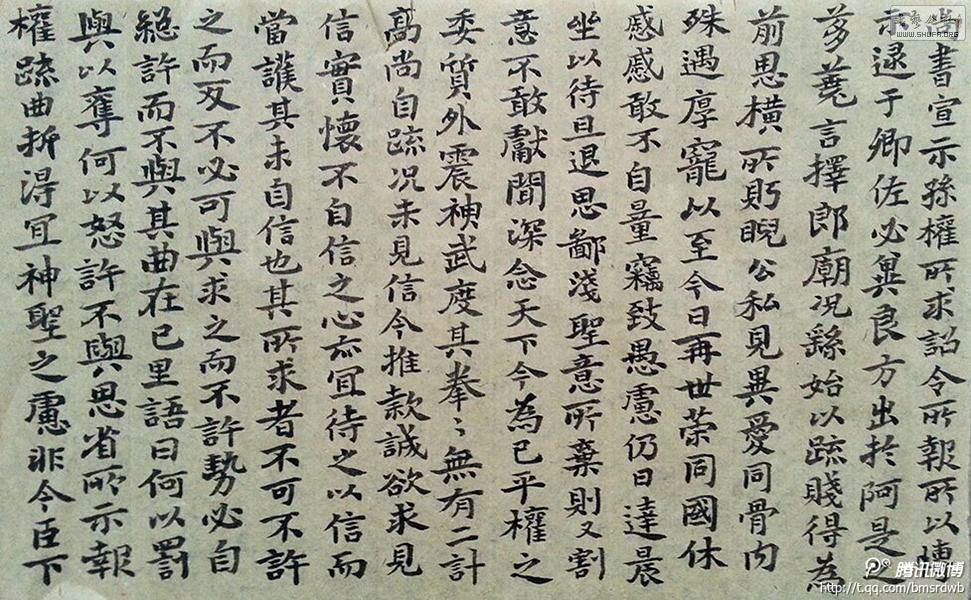 尚書宣示孫權所求詔令所報所以博
示逮于卿佐必異良方出於阿是之
芻蕘言擇郎廟況繇始以疏賤得為
前思橫所眄睨公私見異愛同骨肉
殊遇厚寵以至今日再世荣同國休
慼慼敢不自量竊致愚慮仍日達晨
坐以待旦退思鄙淺聖意所棄則又割
意不敢獻聞深念天下今為已平權之
委質外震神武度其拳〻無有二計
高尚自疏況未見信今推款誠欲求見
信實懷不自信之心亦宜待之以信而
當護其未自信也其所求者不可不許
之而反不必可與求之而不許勢必自
絕許而不與其曲在已里語曰何以罰
與以奪何以怒許不與思省所示報
權疏曲折得宜神聖之慮非今臣下
WWW.SHUFA.ORG
腾讯微博
http://t.qq.com/bmsrdwb